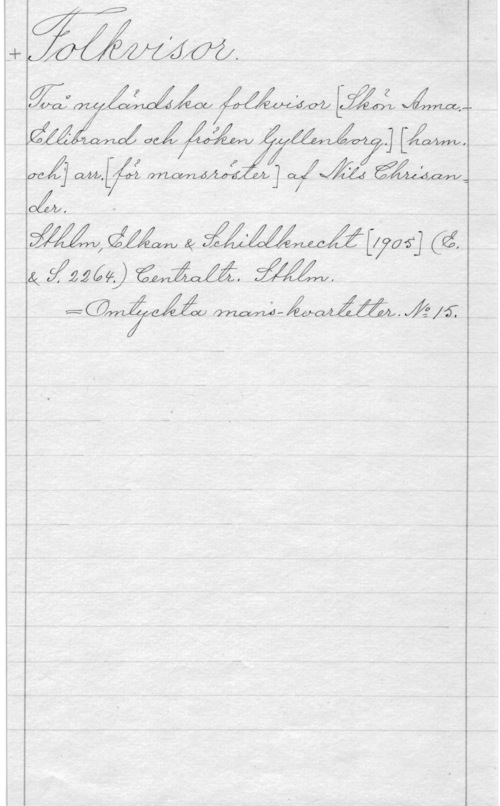 + Folkvisor.
Två nyländska folkvisor [Skön Anna.-
Ellibrand och fröken Gyllenborg.] [harm.
och] arr. [för mansröster] af Nils Chrisan-
der.
Sthlm, Elkan & Schildknecht [1905] (E.
& S. 2264.) Centraltr. Sthlm.
= Omtyckta mans-kvartetter. № 15.